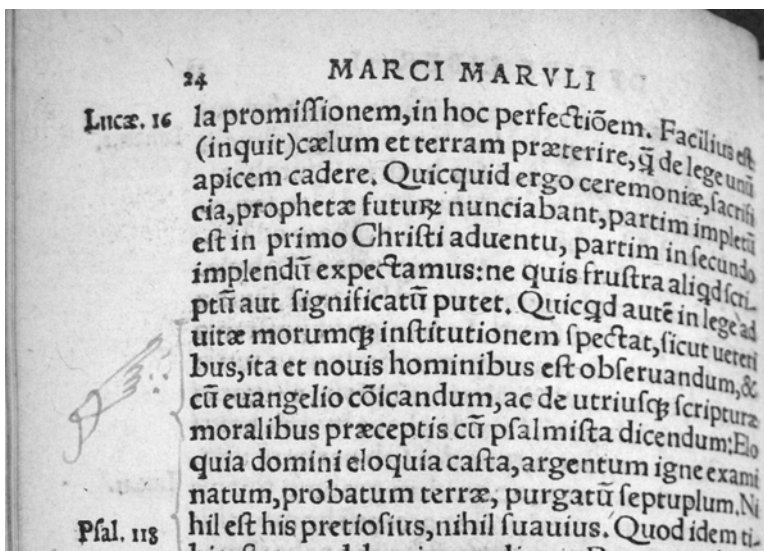 24 MARCI MARVLI
Lucæ. 16 la promiſſionem,in hoc perfectiõem. Facilius eſt
(inquit)cælum et terram præterire,q̃ de lege unũ
apicem cadere. Quicquid ergo ceremoniæ,ſacrifi
cia,prophetæ futurꝝ nunciabant,partim impletũ
eſt in primo Chriſti aduentu, partim in ſecundo
implendũ expectamus:ne quis fruſtra aliqd ſcri-
ptũ aut ſignificatũ putet. Quicqd autẽ in lege ad
uitæ morumqꝫ inſtitutionem ſpectat,ſicut ueteri
bus,ita et nouis hominibus eſt obſeruandum,&
cũ euangelio cõicandum, ac de utriuſqꝫ ſcripturæ
moralibus præceptis cũ pſalmiſta dicendum:Elo
quia domini eloquia caſta,argentum igne exami
natum,probatum terræ, purgatũ ſeptuplum.Ni
Pſal. 118 hil eſt his pretioſius,nihil ſuauius. Quod idem ti-